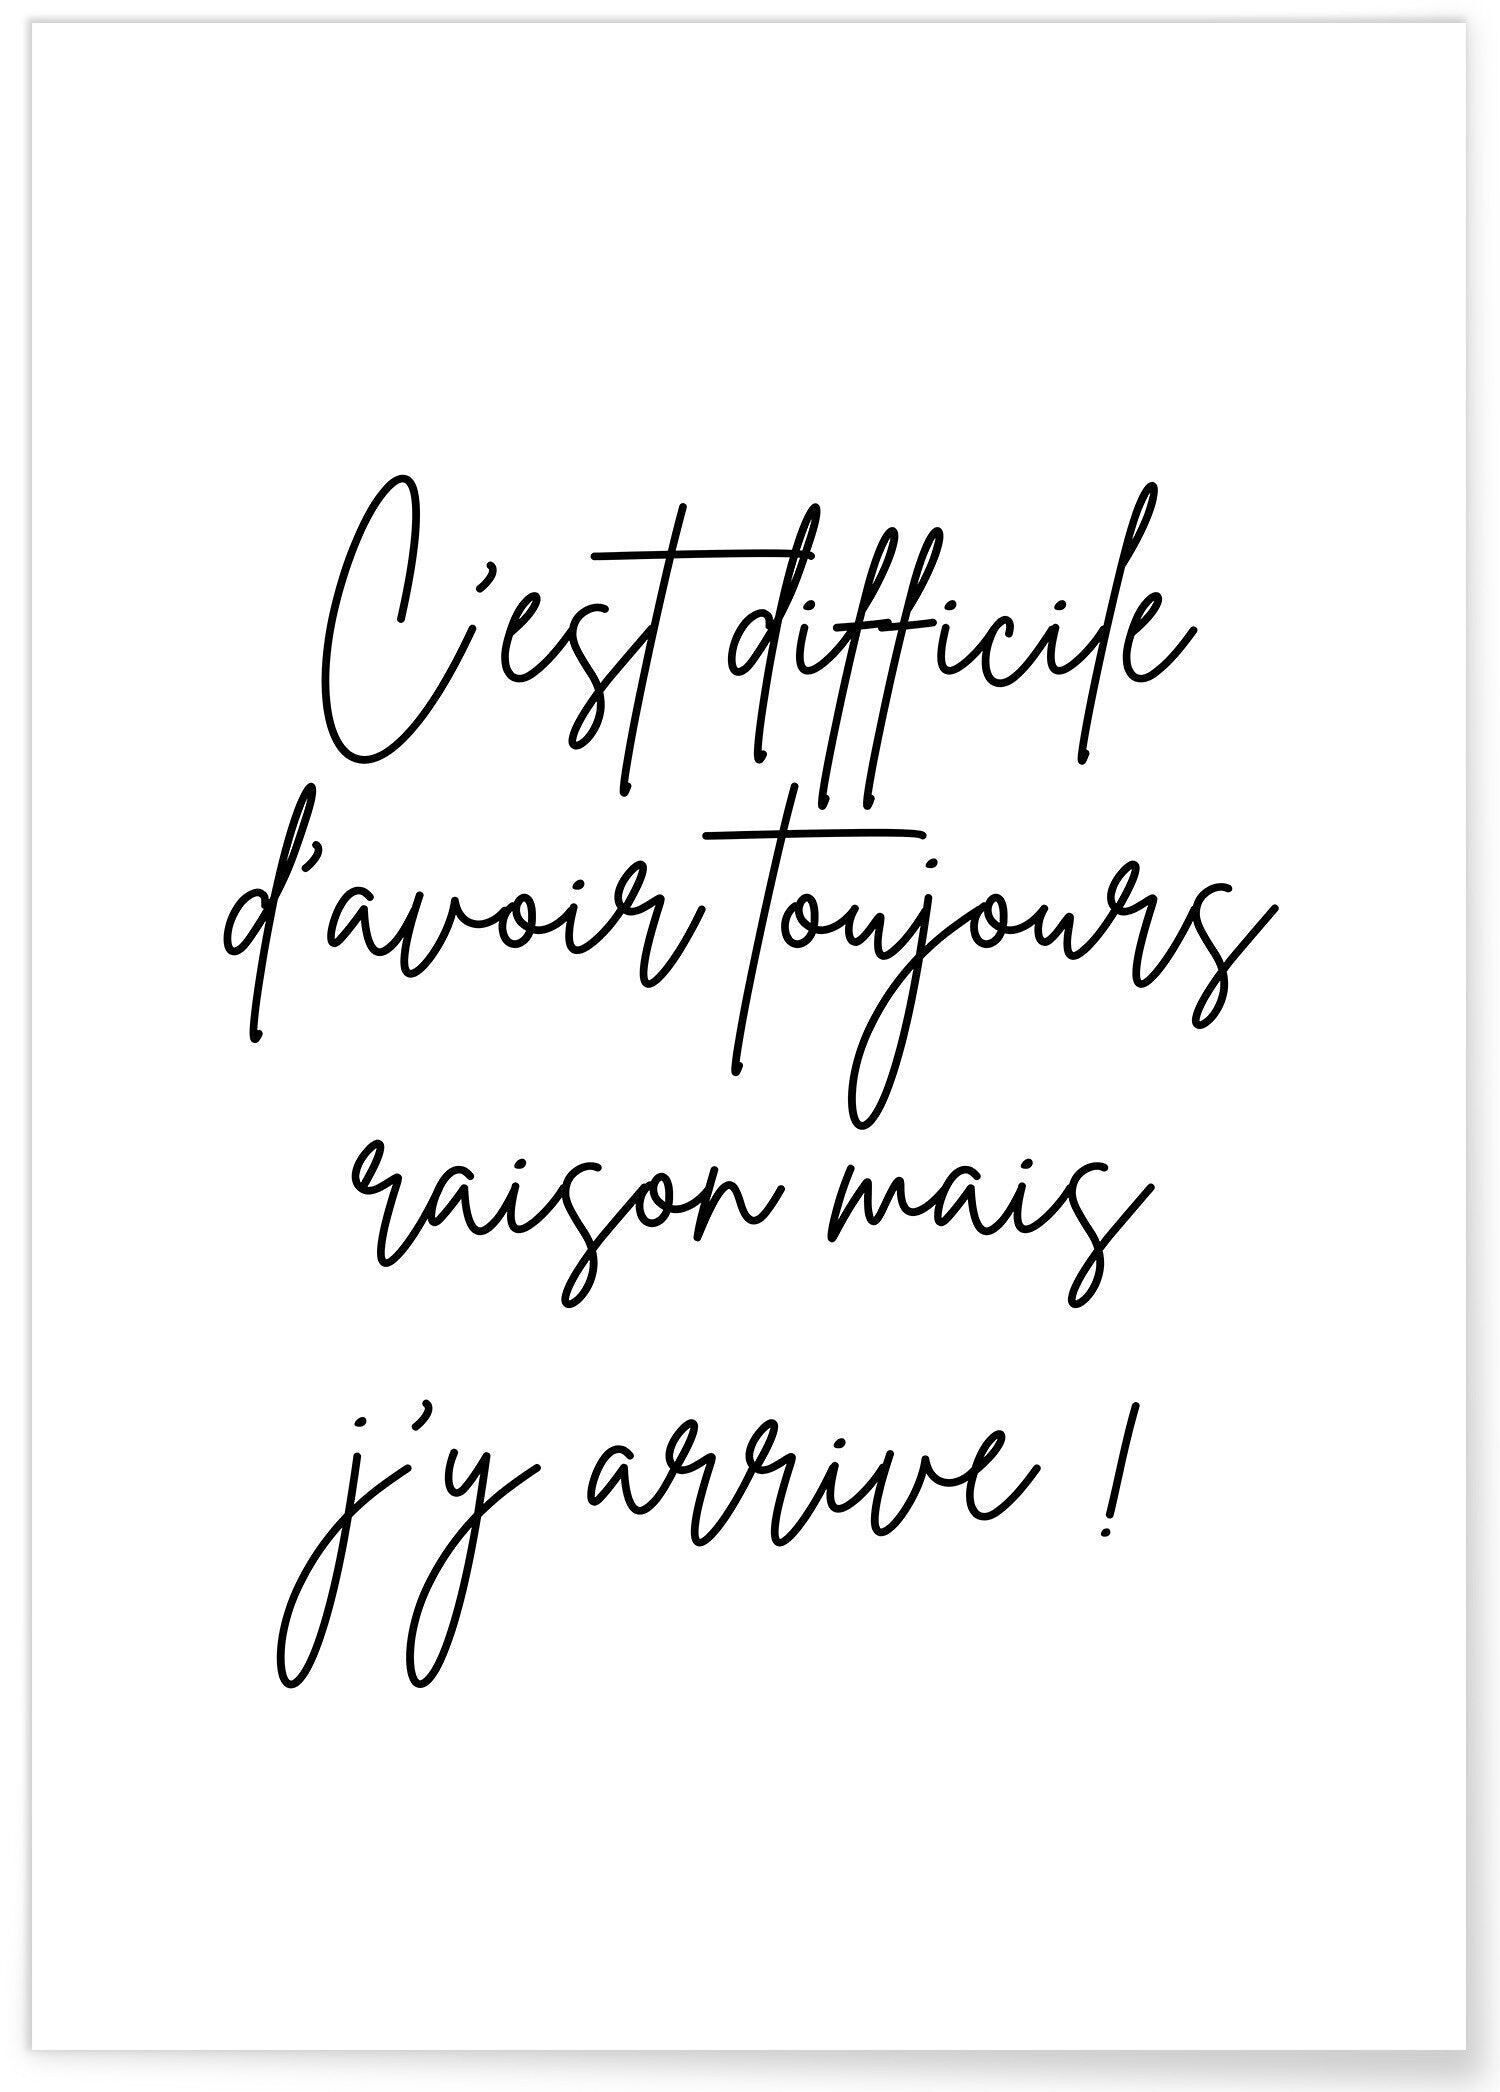 C'est difficile
d'avoir toujours
raison mais
j'y arrive !